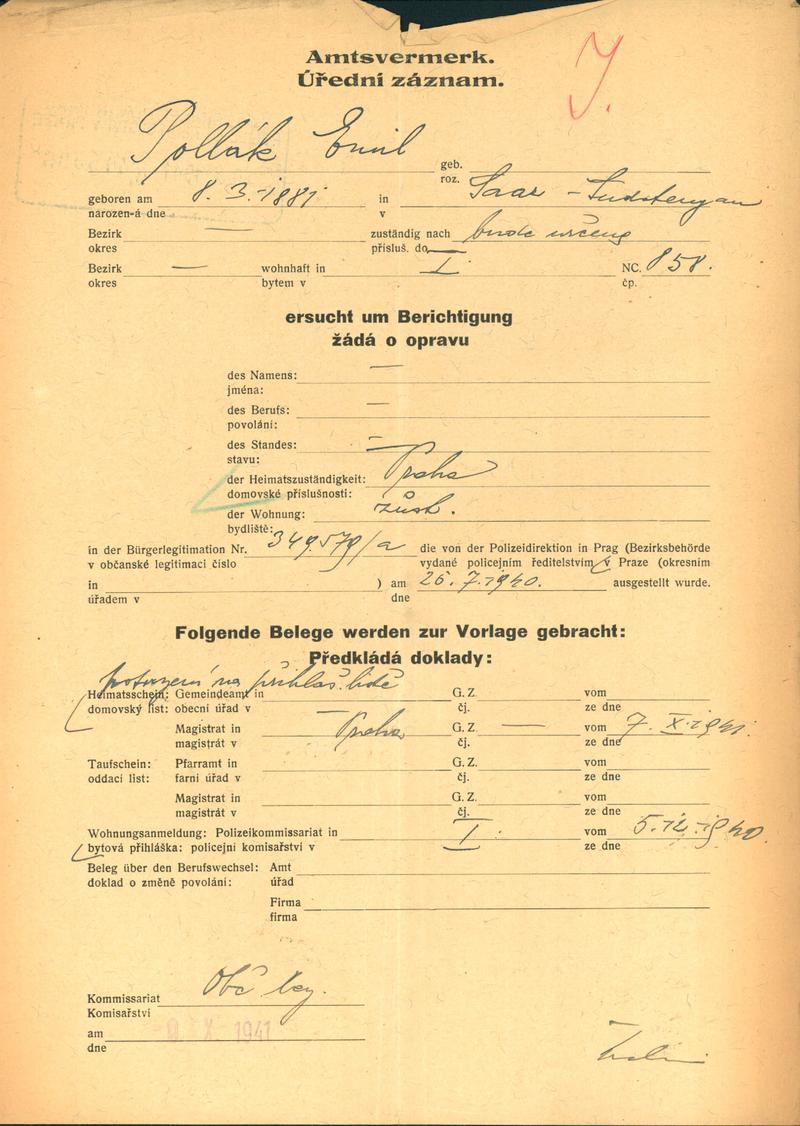 Amtsvermerk.
Úřední záznam.
Pollák Emil
geb.
roz.
geboren am 8. 3. 1881 in Saar - Sudetengau
narozen-á dne v
Bezirk — zuständig nach bude určeno
okres přísluš. do
Bezirk — wohnhaft in I NC. 858.
okres bytem v čp.
ersucht um Berichtigung
žádá o opravu
des Namens: —
jména:
des Berufs: —
povolání:
des Standes: —
stavu:
der Heimatszuständigkeit: Praha
domovské příslušnosti:
der Wohnung: zůst.
bydliště:
in der Bürgerlegitimation Nr. 349.579/a die von der Polizeidirektion in Prag (Bezirksbehörde
v občanské legitimaci číslo vydané policejním ředitelstvím v Praze (okresním
in ) am 26. 7. 1940. ausgestellt wurde.
úřadem v dne
Folgende Belege werden zur Vorlage gebracht:
Předkládá doklady:
potvrzení na přihlaš. listě
Heimatsschein: Gemeindeamt in G. Z. vom
domovský list: obecní úřad v čj. ze dne
Magistrat in Praha G. Z. — vom 7. X. 1941.
magistrát v čj. ze dne
Taufschein: Pfarramt in G. Z. vom
oddací list: farní úřad v čj. ze dne
Magistrat in G. Z. vom
magistrát v čj. ze dne
Wohnungsanmeldung: Polizeikommissariat in I. vom 5. 12. 1940
bytová přihláška: policejní komisařství v ze dne
Beleg über den Berufswechsel: Amt
doklad o změně povolání: úřad
Firma
firma
Kommissariat Obč. leg.
Komisařství
am X 1941
dne